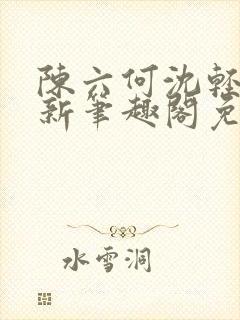 陳六何沈輕
新筆趣閣免
水雪洞